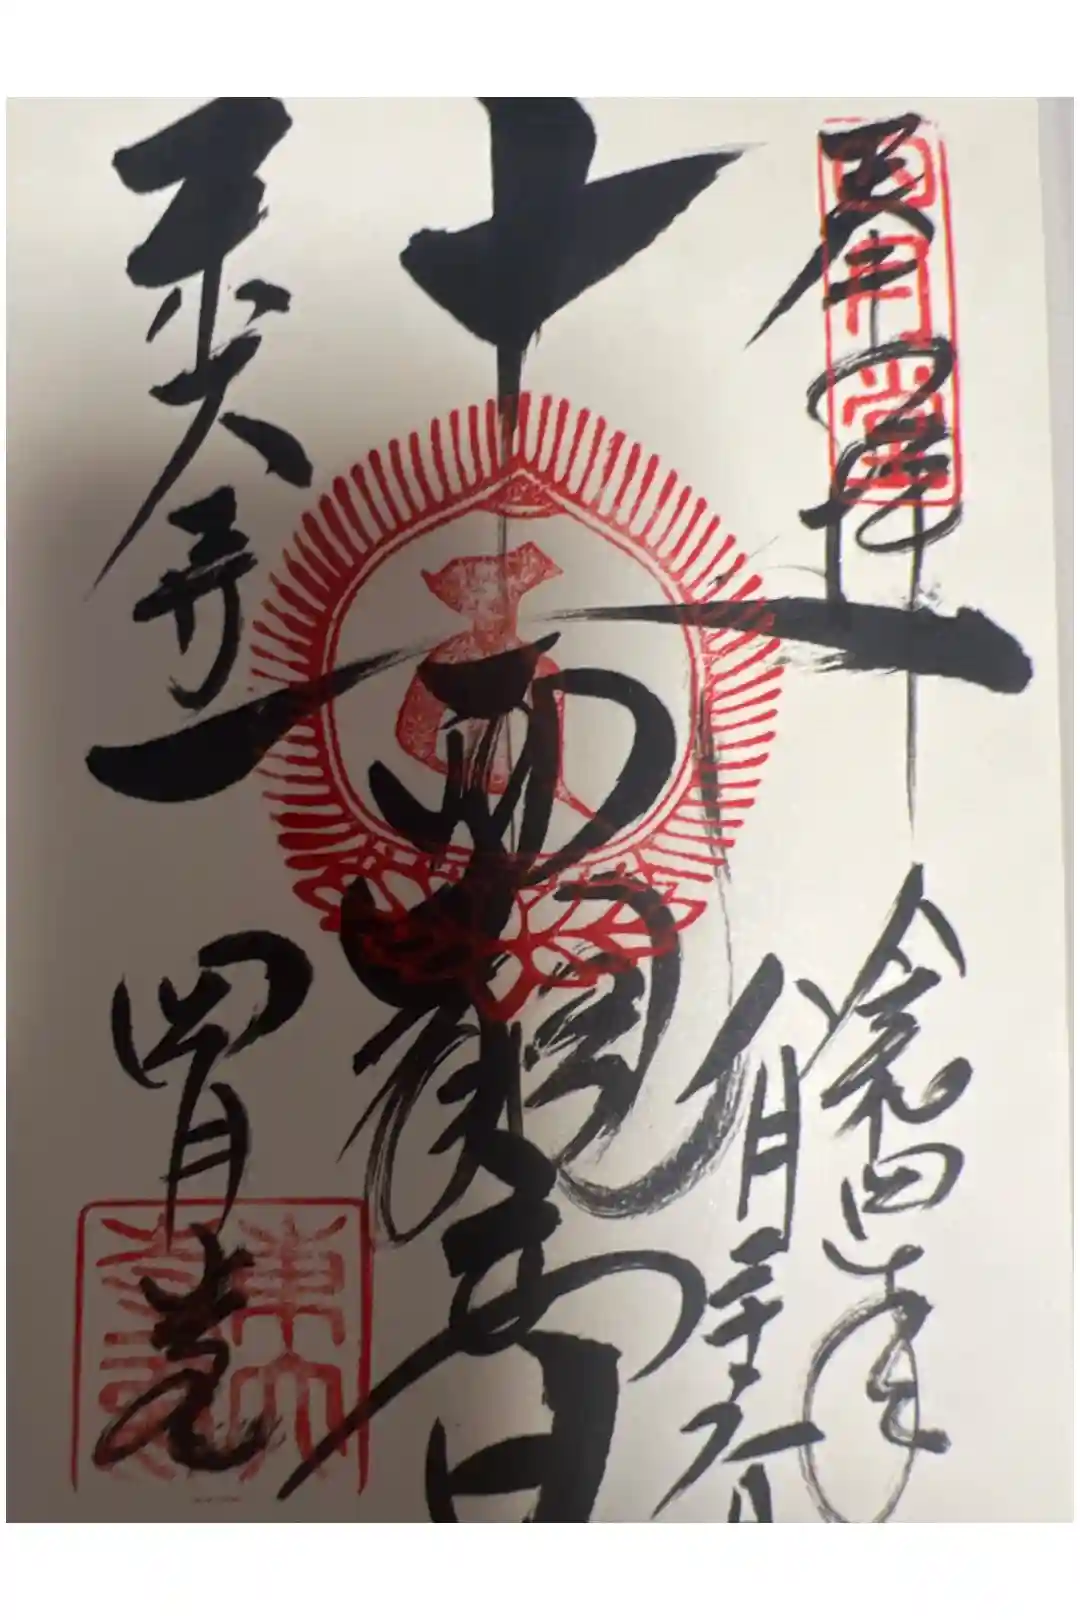 奉拝
令和四年
八月二十六日
十一面観音
東大寺
四月堂